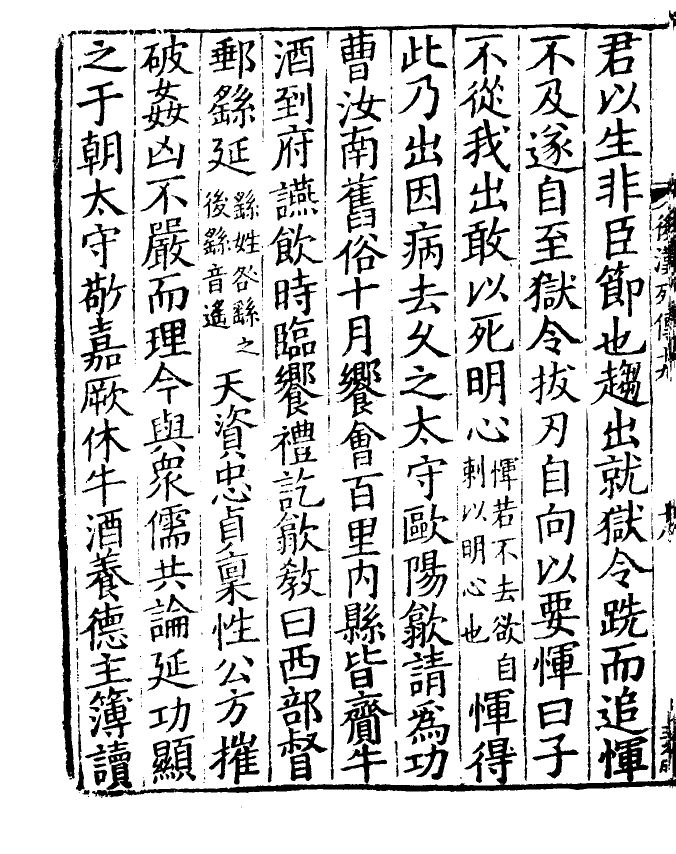 君以生非臣節也趨出就獄令跣而追惲
不及遂自至獄令拔刃自向以要惲曰子
不從我出敢以死明心惲若不去欲自刺以明心也惲得
此乃出因病去久之太守歐陽歙請為功
曹汝南舊俗十月饗會百里内縣皆齎牛
酒到府讌飲時臨饗禮訖歙教曰西部督
郵繇延繇姓咎繇之後繇音遙天資忠貞稟性公方摧
破姦凶不嚴而理今與衆儒共論延功顯
之于朝太守敬嘉厥休牛酒養德主簿讀